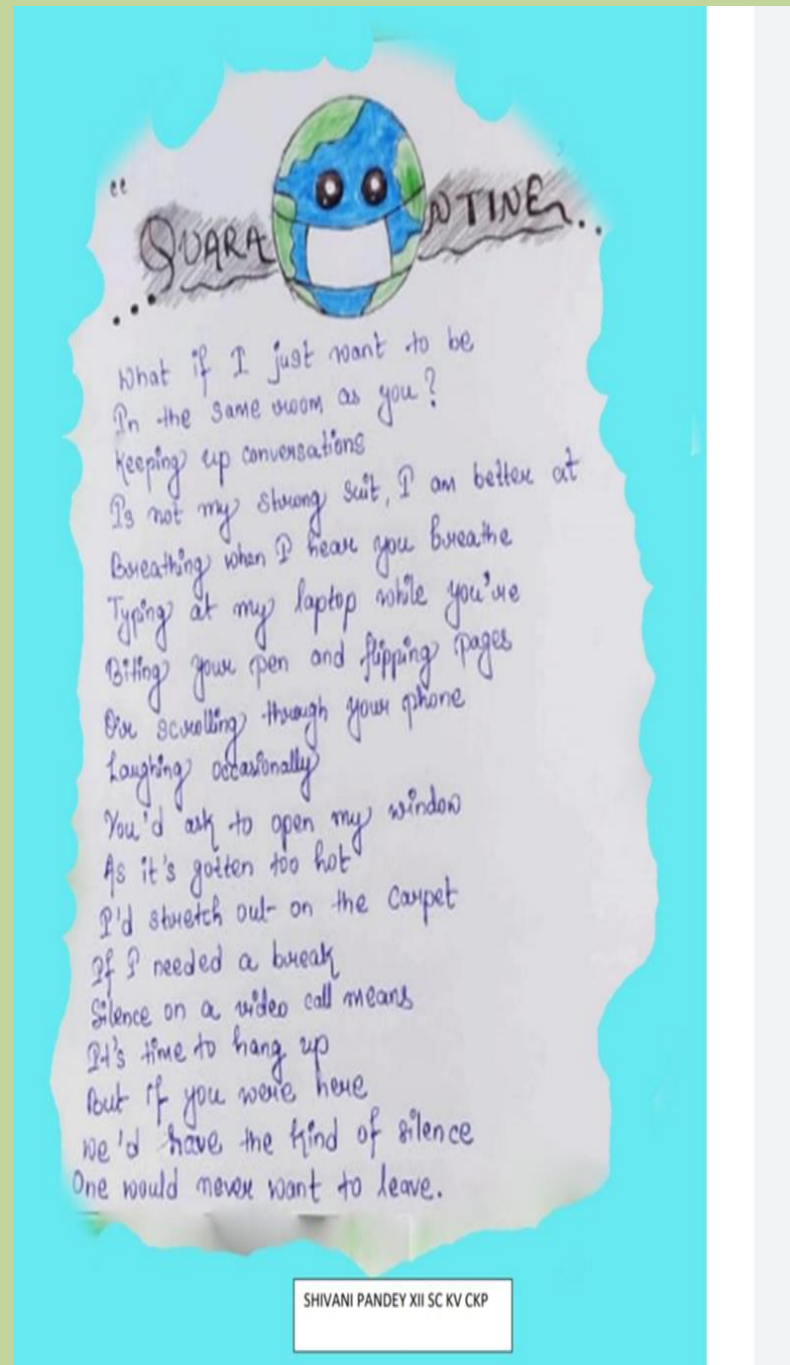 "
QUARANTINE..
...
What if I just want to be
In the same room as you?
Keeping up conversations
Is not my strong suit, I am better at
Breathing when I hear you breathe
Typing at my laptop while you're
Biting your pen and flipping pages
Or scrolling through your phone
Laughing occasionally
You'd ask to open my window
As it's gotten too hot
I'd stretch out on the carpet
If I needed a break
Silence on a video call means
It's time to hang up
But if you were here
We'd have the kind of silence
One would never want to leave.
SHIVANI PANDEY XII SC KV CKP